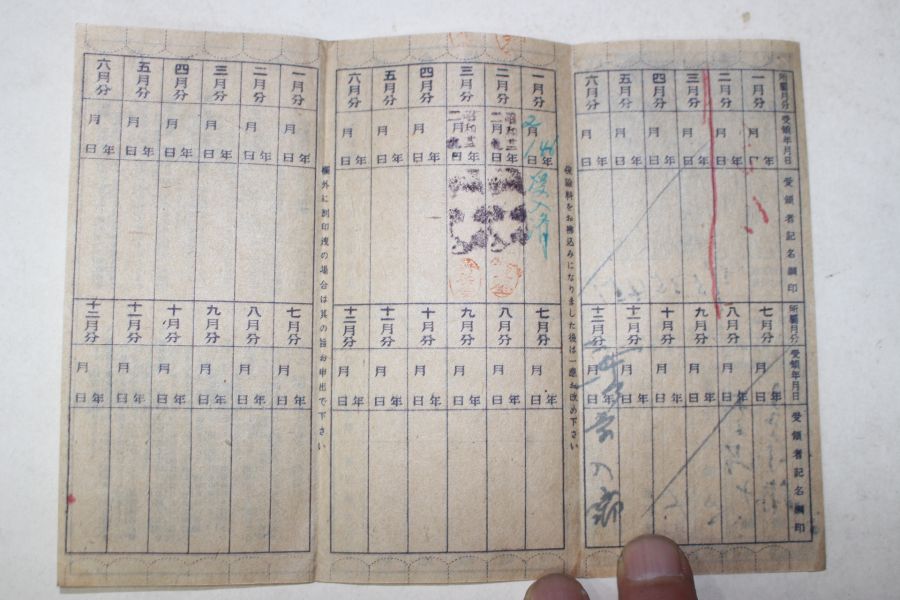 所屬月分
受領年月日
受領者記名調印
一月分
二月分
三月分
四月分
五月分
六月分
年月日
年月日
年月日
年月日
年月日
年月日
所屬月分
受領年月日
受領者記名調印
七月分
八月分
九月分
十月分
十一月分
十二月分
年月日
年月日
年月日
年月日
年月日
年月日
保險料をお拂込みになりました後は一應お改め下さい
一月分
二月分
三月分
四月分
五月分
六月分
2年月14日
昭和 年二月 日
昭和 年二月 日
年月日
年月日
年月日
七月分
八月分
九月分
十月分
十一月分
十二月分
年月日
年月日
年月日
年月日
年月日
年月日
欄外に割印洩の場合は其の旨お申出で下さい
一月分
二月分
三月分
四月分
五月分
六月分
年月日
年月日
年月日
年月日
年月日
年月日
七月分
八月分
九月分
十月分
十一月分
十二月分
年月日
年月日
年月日
年月日
年月日
年月日